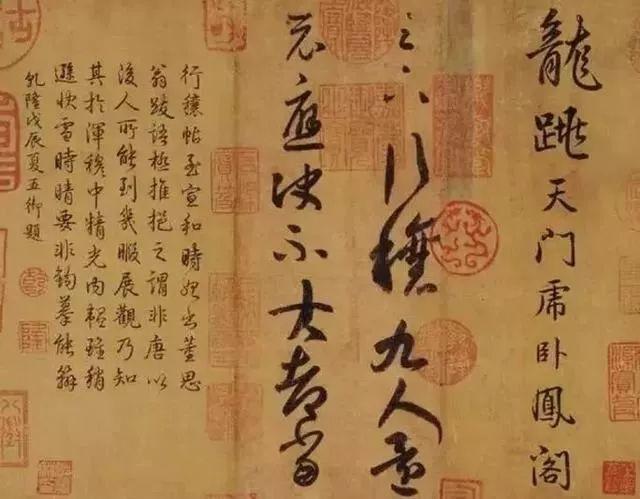 龍跳天門虎臥鳳閣
足下行穰九人還
示應決不大都當
行穰帖至宣和時始出董思
翁跋語極推挹之謂非唐以
後人所能到幾暇展觀乃知
其於渾穆中精光內韞雖稍
遜快雪時晴要非鉤摹能辦
乾隆戊辰夏五御題